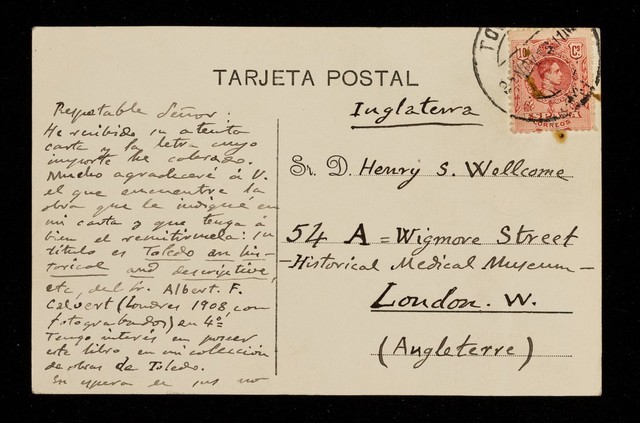 TARJETA POSTAL
10 Cs
CORREOS
Respetable Señor:
He recibido su atenta
carta y la letra cuyo
importe he cobrado.
Mucho agradeceré á V.
el que encuentre la
obra que le indiqué en
mi carta y que tenga á
bien el remitírmela: su
título es Toledo an his-
torical and descriptive,
etc, del Sr. Albert. F.
Calvert (Londres 1908, con
fotograbados) en 4º
Tengo interés en poseer
este libro, en mi colección
de obras de Toledo.
En espera en sus no
Inglaterra
Sr. D. Henry S. Wellcome
54 A = Wigmore Street
- Historical Medical Museum -
London. W.
(Angleterre)